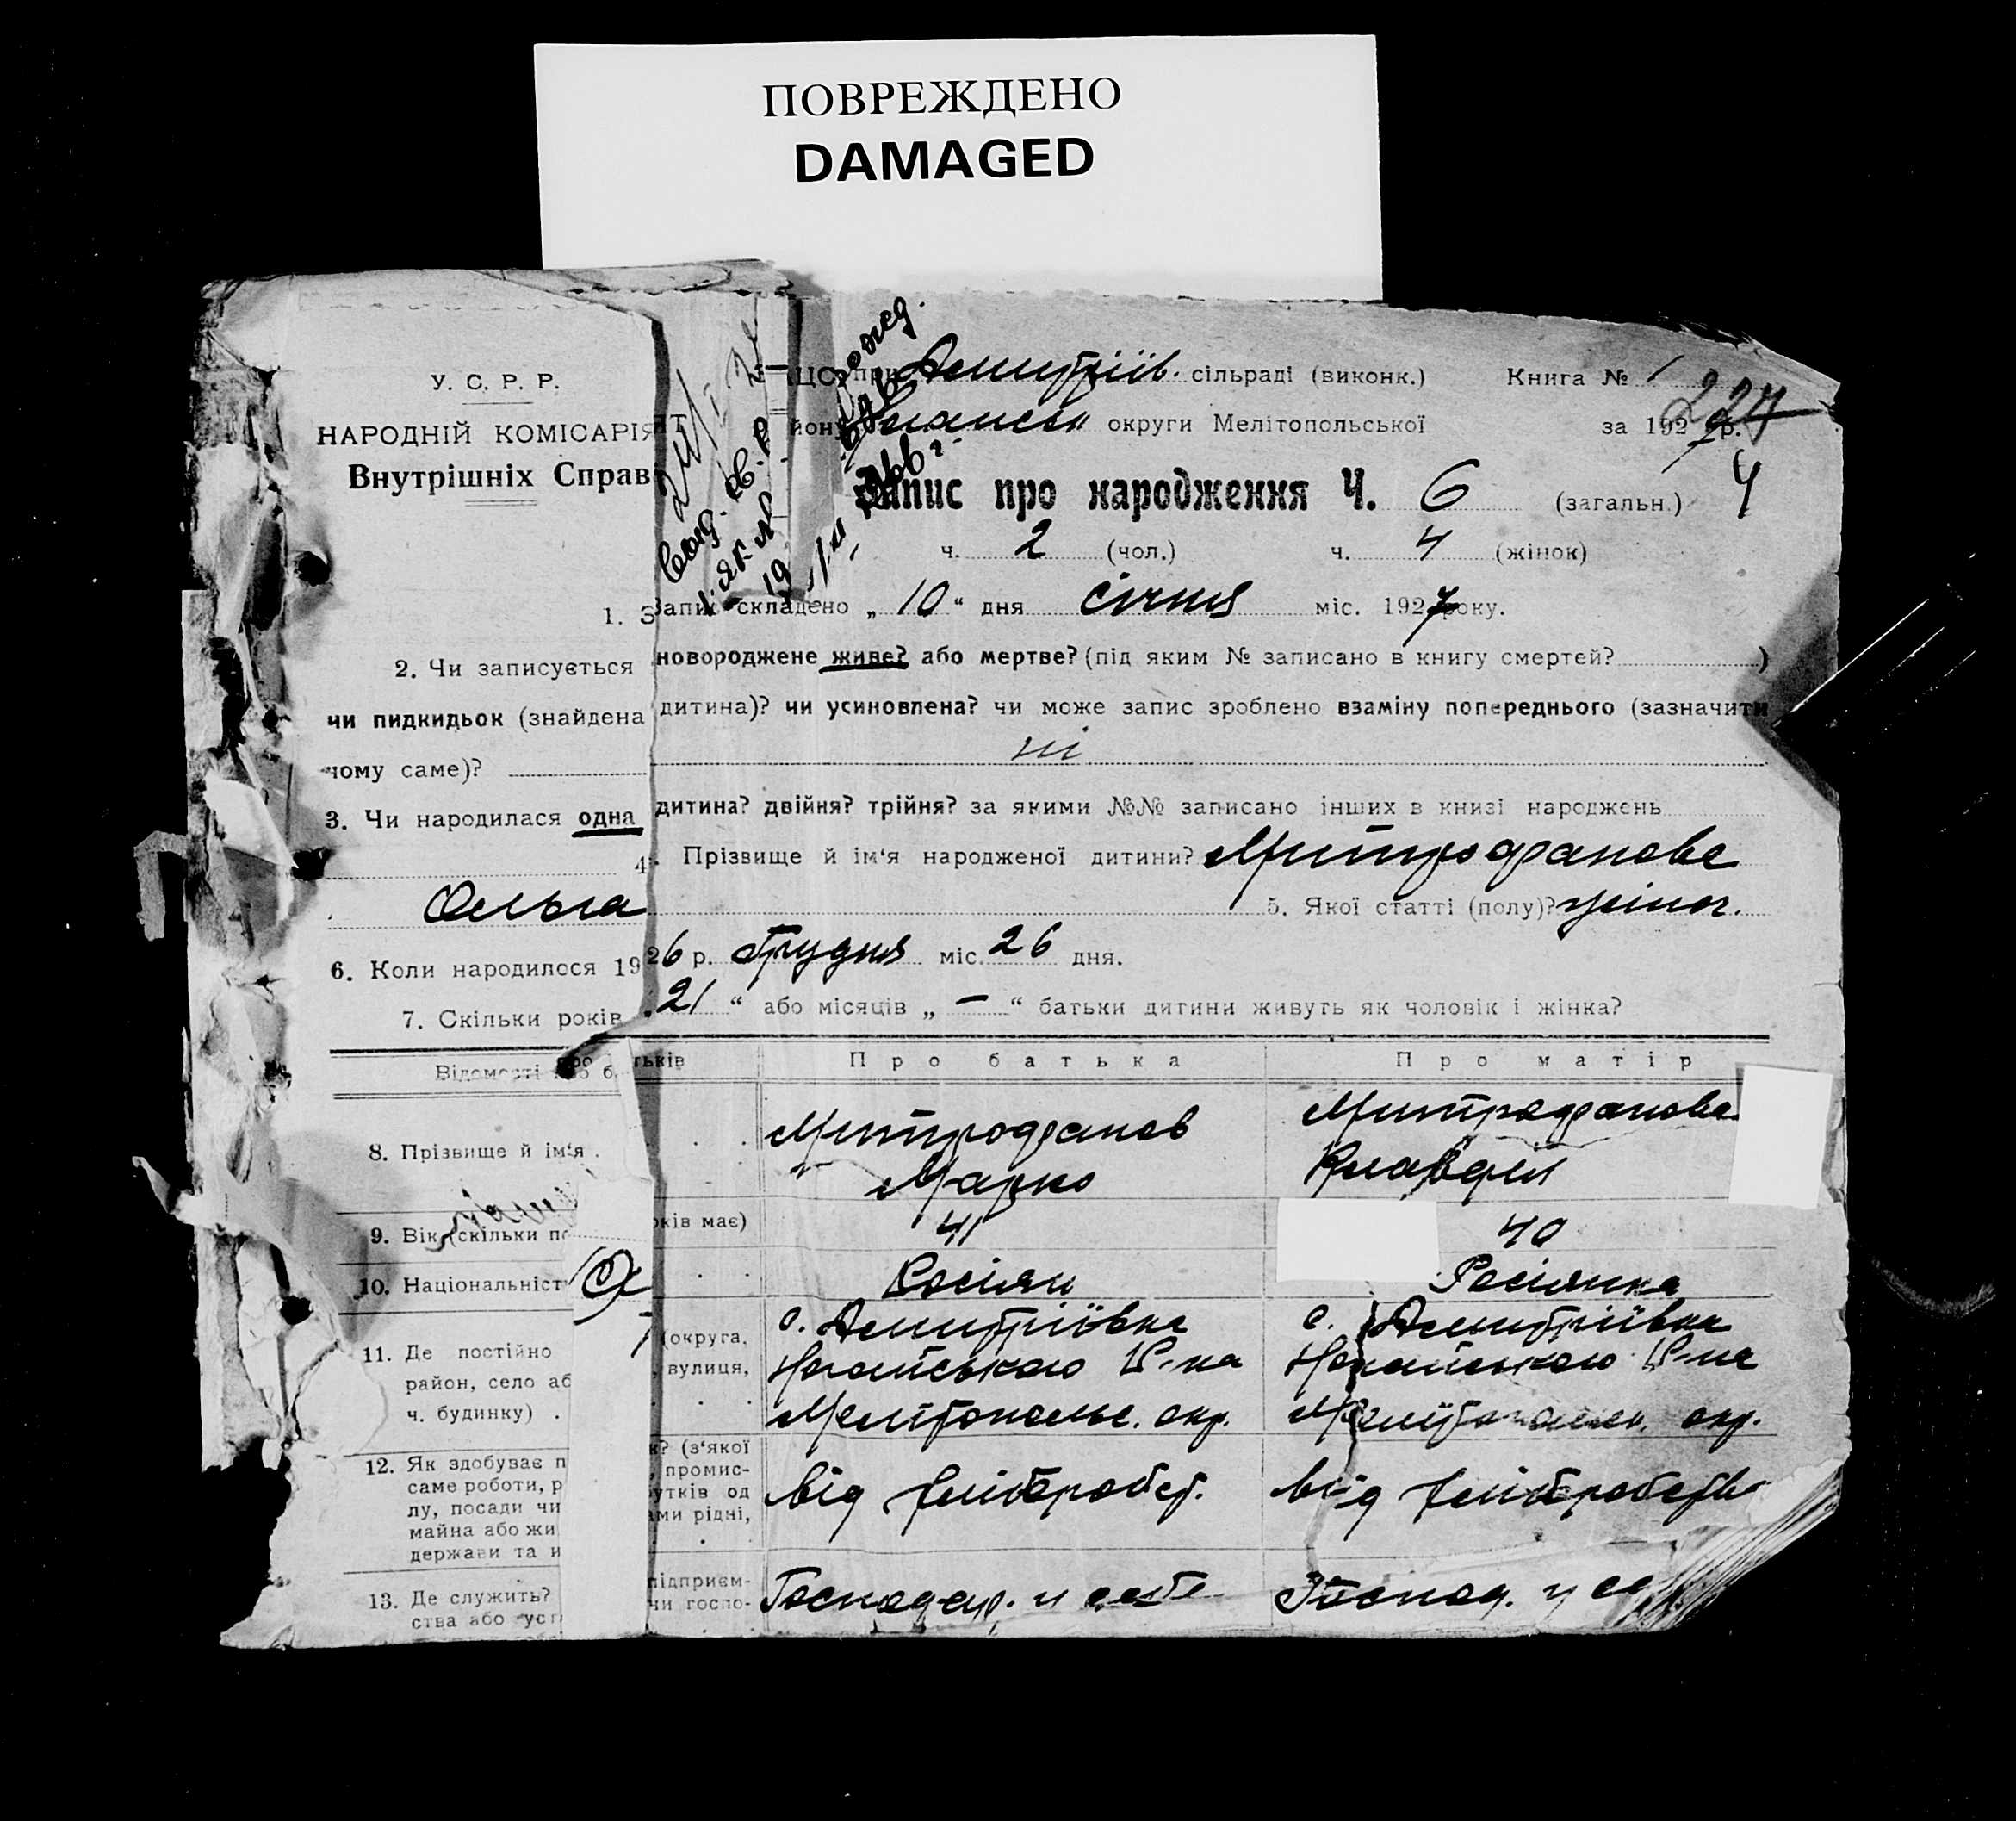 ПОВРЕЖДЕНО
DAMAGED
У. С. Р. Р.
НАРОДНІЙ КОМІСАРІЯ
Внутрішніх Справ
при Дмитріїв. сільраді (виконк.) Книга № 1
округи Мелітопольської за 1927 р.
224
Запис про народження Ч. 6 (загальн.) 4
ч. 2 (чол.) ч. 4 (жінок)
1. Запис складено „ 10 “ дня січня міс. 1927 року.
2. Чи записується новороджене живе? або мертве? (під яким № записано в книгу смертей? )
чи пидкидьок (знайдена дитина)? чи усиновлена? чи може запис зроблено взаміну попереднього (зазначити
чому саме)? ні
3. Чи народилася одна дитина? двійня? трійня? за якими №№ записано інших в книзі народжень
4. Прізвище й ім‘я народженої дитини? Митрофанова
Ольга 5. Якої статті (полу)? жіноч.
6. Коли народилося 1926 р. Грудня міс. 26 дня.
7. Скільки років 21 “ або місяців „ — “ батьки дитини живуть як чоловік і жінка?
Відомості про батьків Про батька Про матір
8. Прізвище й ім‘я . Митрофанов Марко Митрофанова Клавдія
9. Вік (скільки по років має) 41 40
10. Національніст Росіян Росіянка
11. Де постійно (округа, с. Дмитріївка с. Дмитріївка
район, село аб вулиця, Ногайського Р-на Ногайського Р-на
ч. будинку) . Мелітопольс. окр. окр.
12. Як здобуває п к? (з‘якої
саме роботи, р промис-
лу, посади чи утків од від хліборобст. від хліборобства
майна або жи ами рідні,
держави та и
13. Де служить? підприєм- Господар. у себе Господ. у се
ства або ус чи госпо-